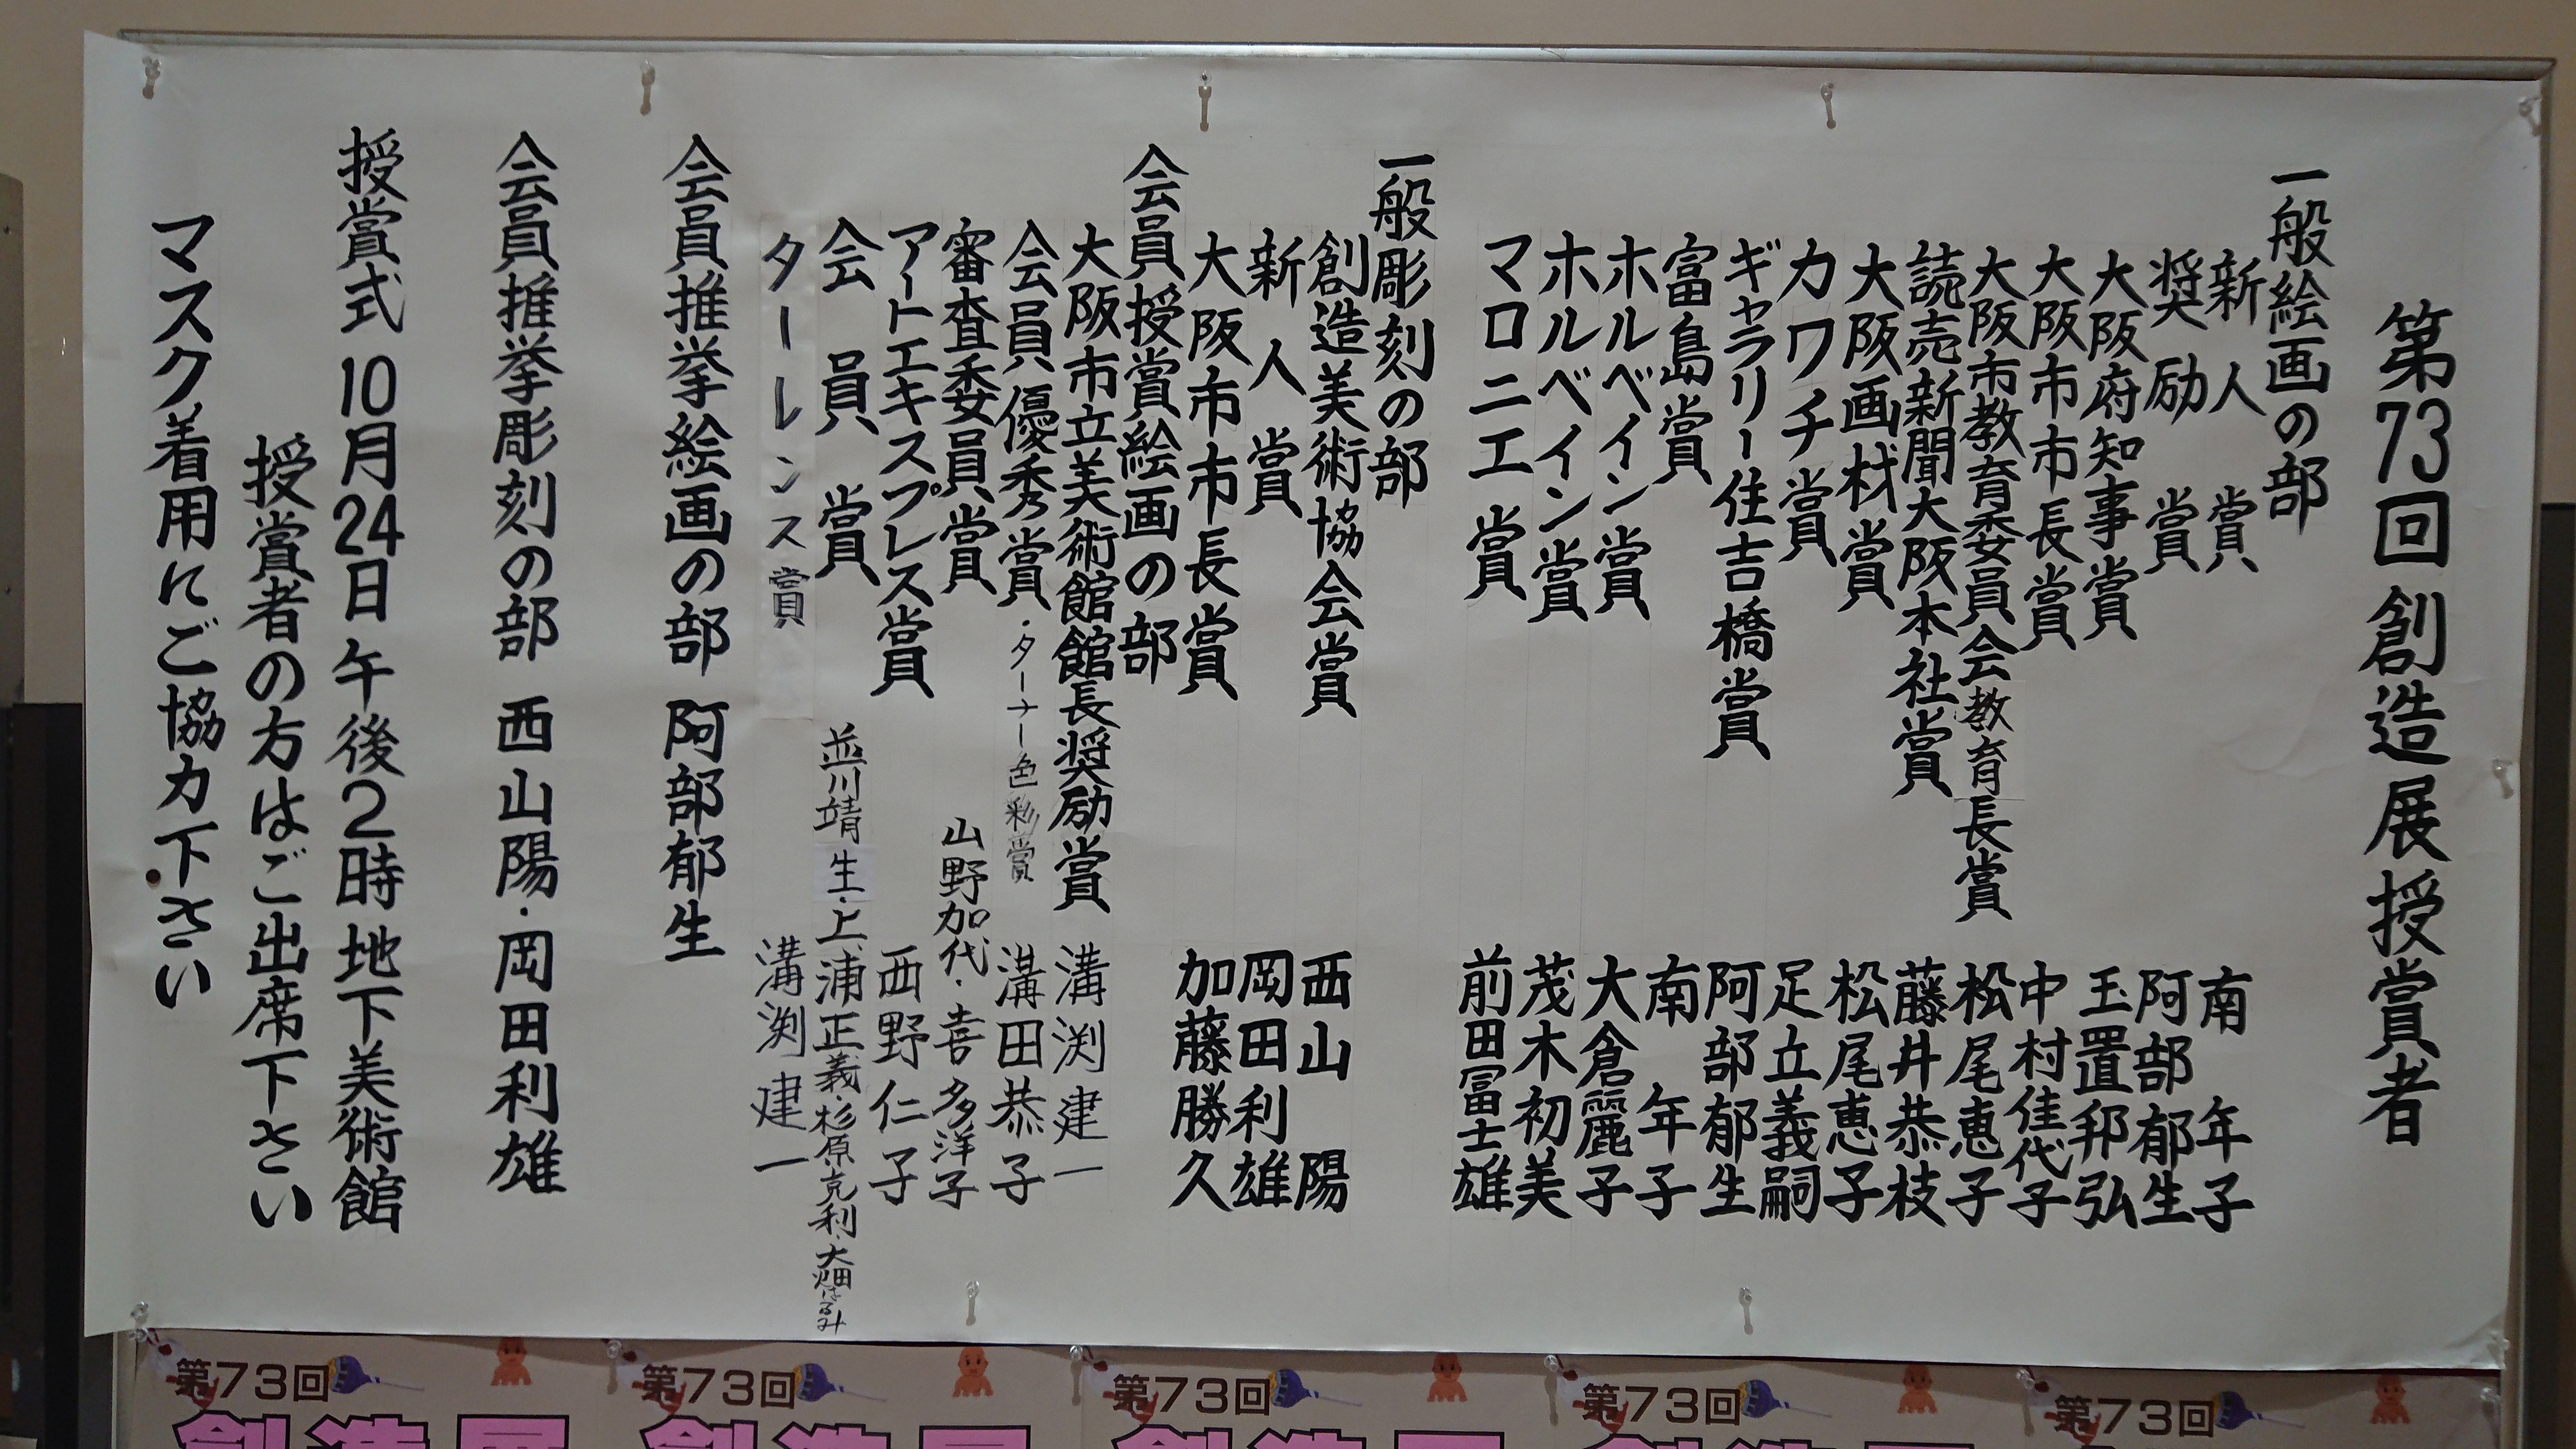 第73回 創造展 授賞者
一般絵画の部
新人賞 南 年子
奨励賞 阿部郁生
大阪府知事賞 玉置邦弘
大阪市市長賞 中村佳代子
大阪市教育委員会教育長賞 松尾恵子
読売新聞大阪本社賞 藤井恭枝
大阪画材賞 松尾恵子
カワチ賞 足立義嗣
ギャラリー住吉橋賞 阿部郁生
富島賞 南 年子
ホルベイン賞 大倉麗子
ホルベイン賞 茂木初美
マロニエ賞 前田富士雄
一般彫刻の部
創造美術協会賞 西山 陽
新人賞 岡田利雄
大阪市市長賞 加藤勝久
会員授賞絵画の部
大阪市立美術館館長奨励賞 溝渕建一
会員優秀賞・ターナー色彩賞 溝田恭子
審査委員賞 山野加代・喜多洋子
アートエキスプレス賞 西野仁子
会員賞 並川靖生・上浦正義・杉原克利・大畑はるみ
ターレンス賞 溝渕建一
会員推挙絵画の部 阿部郁生
会員推挙彫刻の部 西山陽・岡田利雄
授賞式 10月24日 午後2時 地下美術館
授賞者の方はご出席下さい
マスク着用にご協力下さい
第73回
創造展
第73回
創造展
第73回
創造展
第73回
創造展
第73回